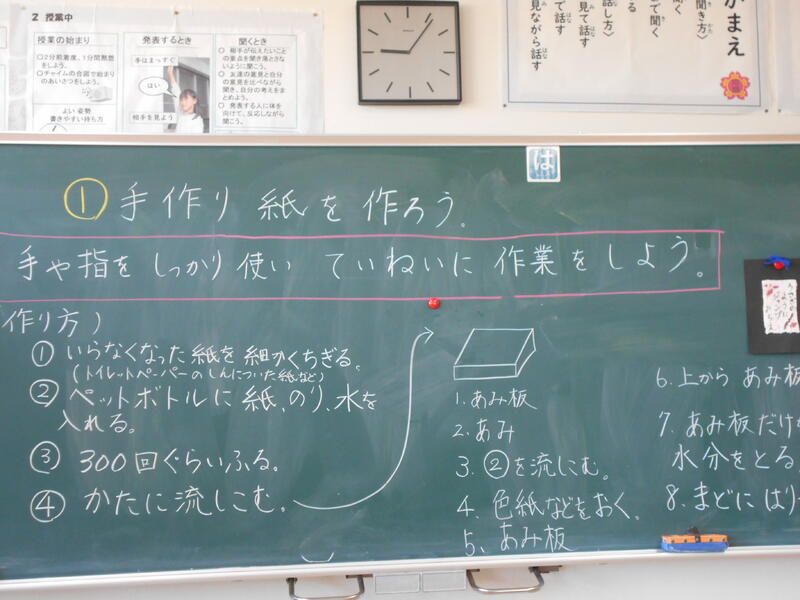 2 授業中
授業の始まり
○2分前着席、1分間黙想をしよう。
○チャイムの合図で始まりのあいさつをしよう。
よい 姿勢
書きやすい持ち方
発表するとき
手はまっすぐ
はい
相手を見よう
聞くとき
○ 相手が伝えたいことの要点を聞き落とさないように聞こう。
○ 友達の意見と自分の意見を比べながら聞き、自分の考えをまとめよう。
○ 発表する人に体を向けて、反応しながら聞こう。
がまえ
聞き方〉
て聞く
話し方〉
見て話す
で話す
見ながら話す
は
① 手作り 紙を 作ろう。
手や指を しっかり 使い ていねいに 作業を しよう。
作り方)
① いらなくなった 紙を 細かくちぎる。
(トイレットペーパーの しんについた 紙など)
② ペットボトルに 紙、のり、水を
入れる。
③ 300回ぐらいふる。
④ かたに流しこむ。
1. あみ板
2. あみ
3. ②を流しこむ。
4. 色紙などをおく。
5. あみ板
6. 上から あみ板
7. あみ板だけ
水分をとる
8. まどに はり